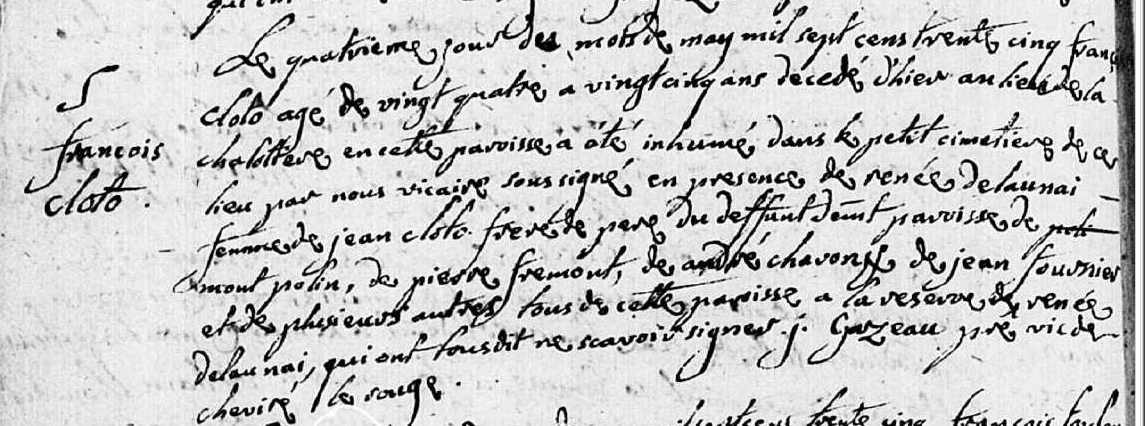 Le quatrieme jour des mois de may mil sept cens trente cinq franç
cloto agé de vingt quatre a vingt cinq ans decedé d'hier au lieu de la
S
françois
cloto.
chelottere en cette paroisse a été inhumé dans le petit cimetiere de ce
lieu par nous vicaire soussigné en presence de renée delaunai
femme de jean cloto frere de pere du deffunt paroisse de
mont polin, de pierre fremont, de andré charons de jean fournier
et de plusieurs autres tous de cette paroisse a la reserve de renée
delaunai, qui ont tous dit ne scavoir signer. j. Gazeau pre vic de
cheviré le rouge.
sept cens trente cinq françois